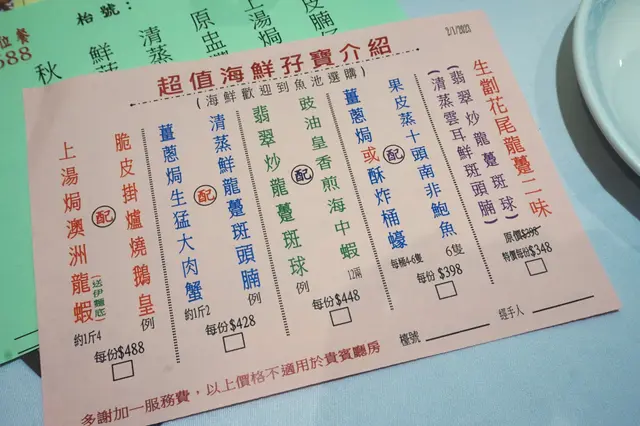 超值海鮮孖寶介紹
2/1/2023
(海鮮歡迎到魚池選購)
生劏花尾龍躉二味
(翡翠炒龍躉斑球)
(清蒸雲耳鮮斑頭腩)
原價$398
特價每份$348
果皮蒸十頭南非鮑魚
6隻
配
薑蔥焗或酥炸桶蠔
每桶4-6隻
每份$398
豉油皇香煎海中蝦
12兩
配
翡翠炒龍躉斑球
例
每份$448
清蒸鮮龍躉斑頭腩
例
配
薑蔥焗生猛大肉蟹
約1斤2
每份$428
脆皮掛爐燒鵝皇
例
配
上湯焗澳洲龍蝦
(送伊麵底)
約1斤4
每份$488
檯號
經手人
多謝加一服務費，以上價格不適用於貴賓廳房
枱號：
位餐
588
皮腩
上湯焗
原盅
清蒸
鮮
秋